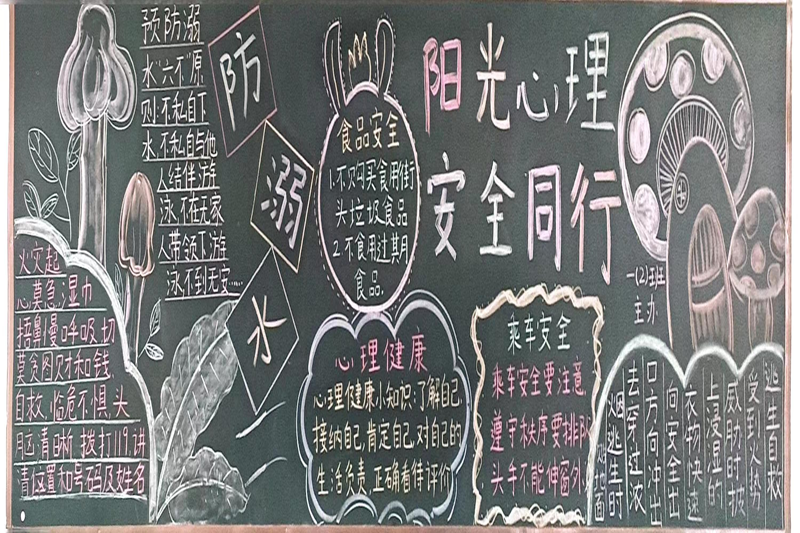 预防溺
水“六不”原
则:不私自下
水、不私自与他
人结伴游
泳、不在无家
人带领下游
泳、不到无安...
防
溺
水
食品安全
1.不购买食用街
头垃圾食品
2.不食用过期
食品.
阳光心理
安全同行
一(2)班
主办
火灾起
心莫急,湿巾
捂鼻慢呼吸,切
莫贪图财和钱
自救,临危不惧,头
脑清晰,拨打119讲
清位置和号码及姓名
心理健康
心理健康小知识:了解自己
接纳自己,肯定自己,对自己的
生活负责,正确看待评价
乘车安全
乘车安全要注意
遵守秩序要排队
头手不能伸窗外
逃生自救
受到火势
威胁时披
上浸湿的
衣物快速
向安全出
口方向冲出
去穿过浓
烟逃生时
地面